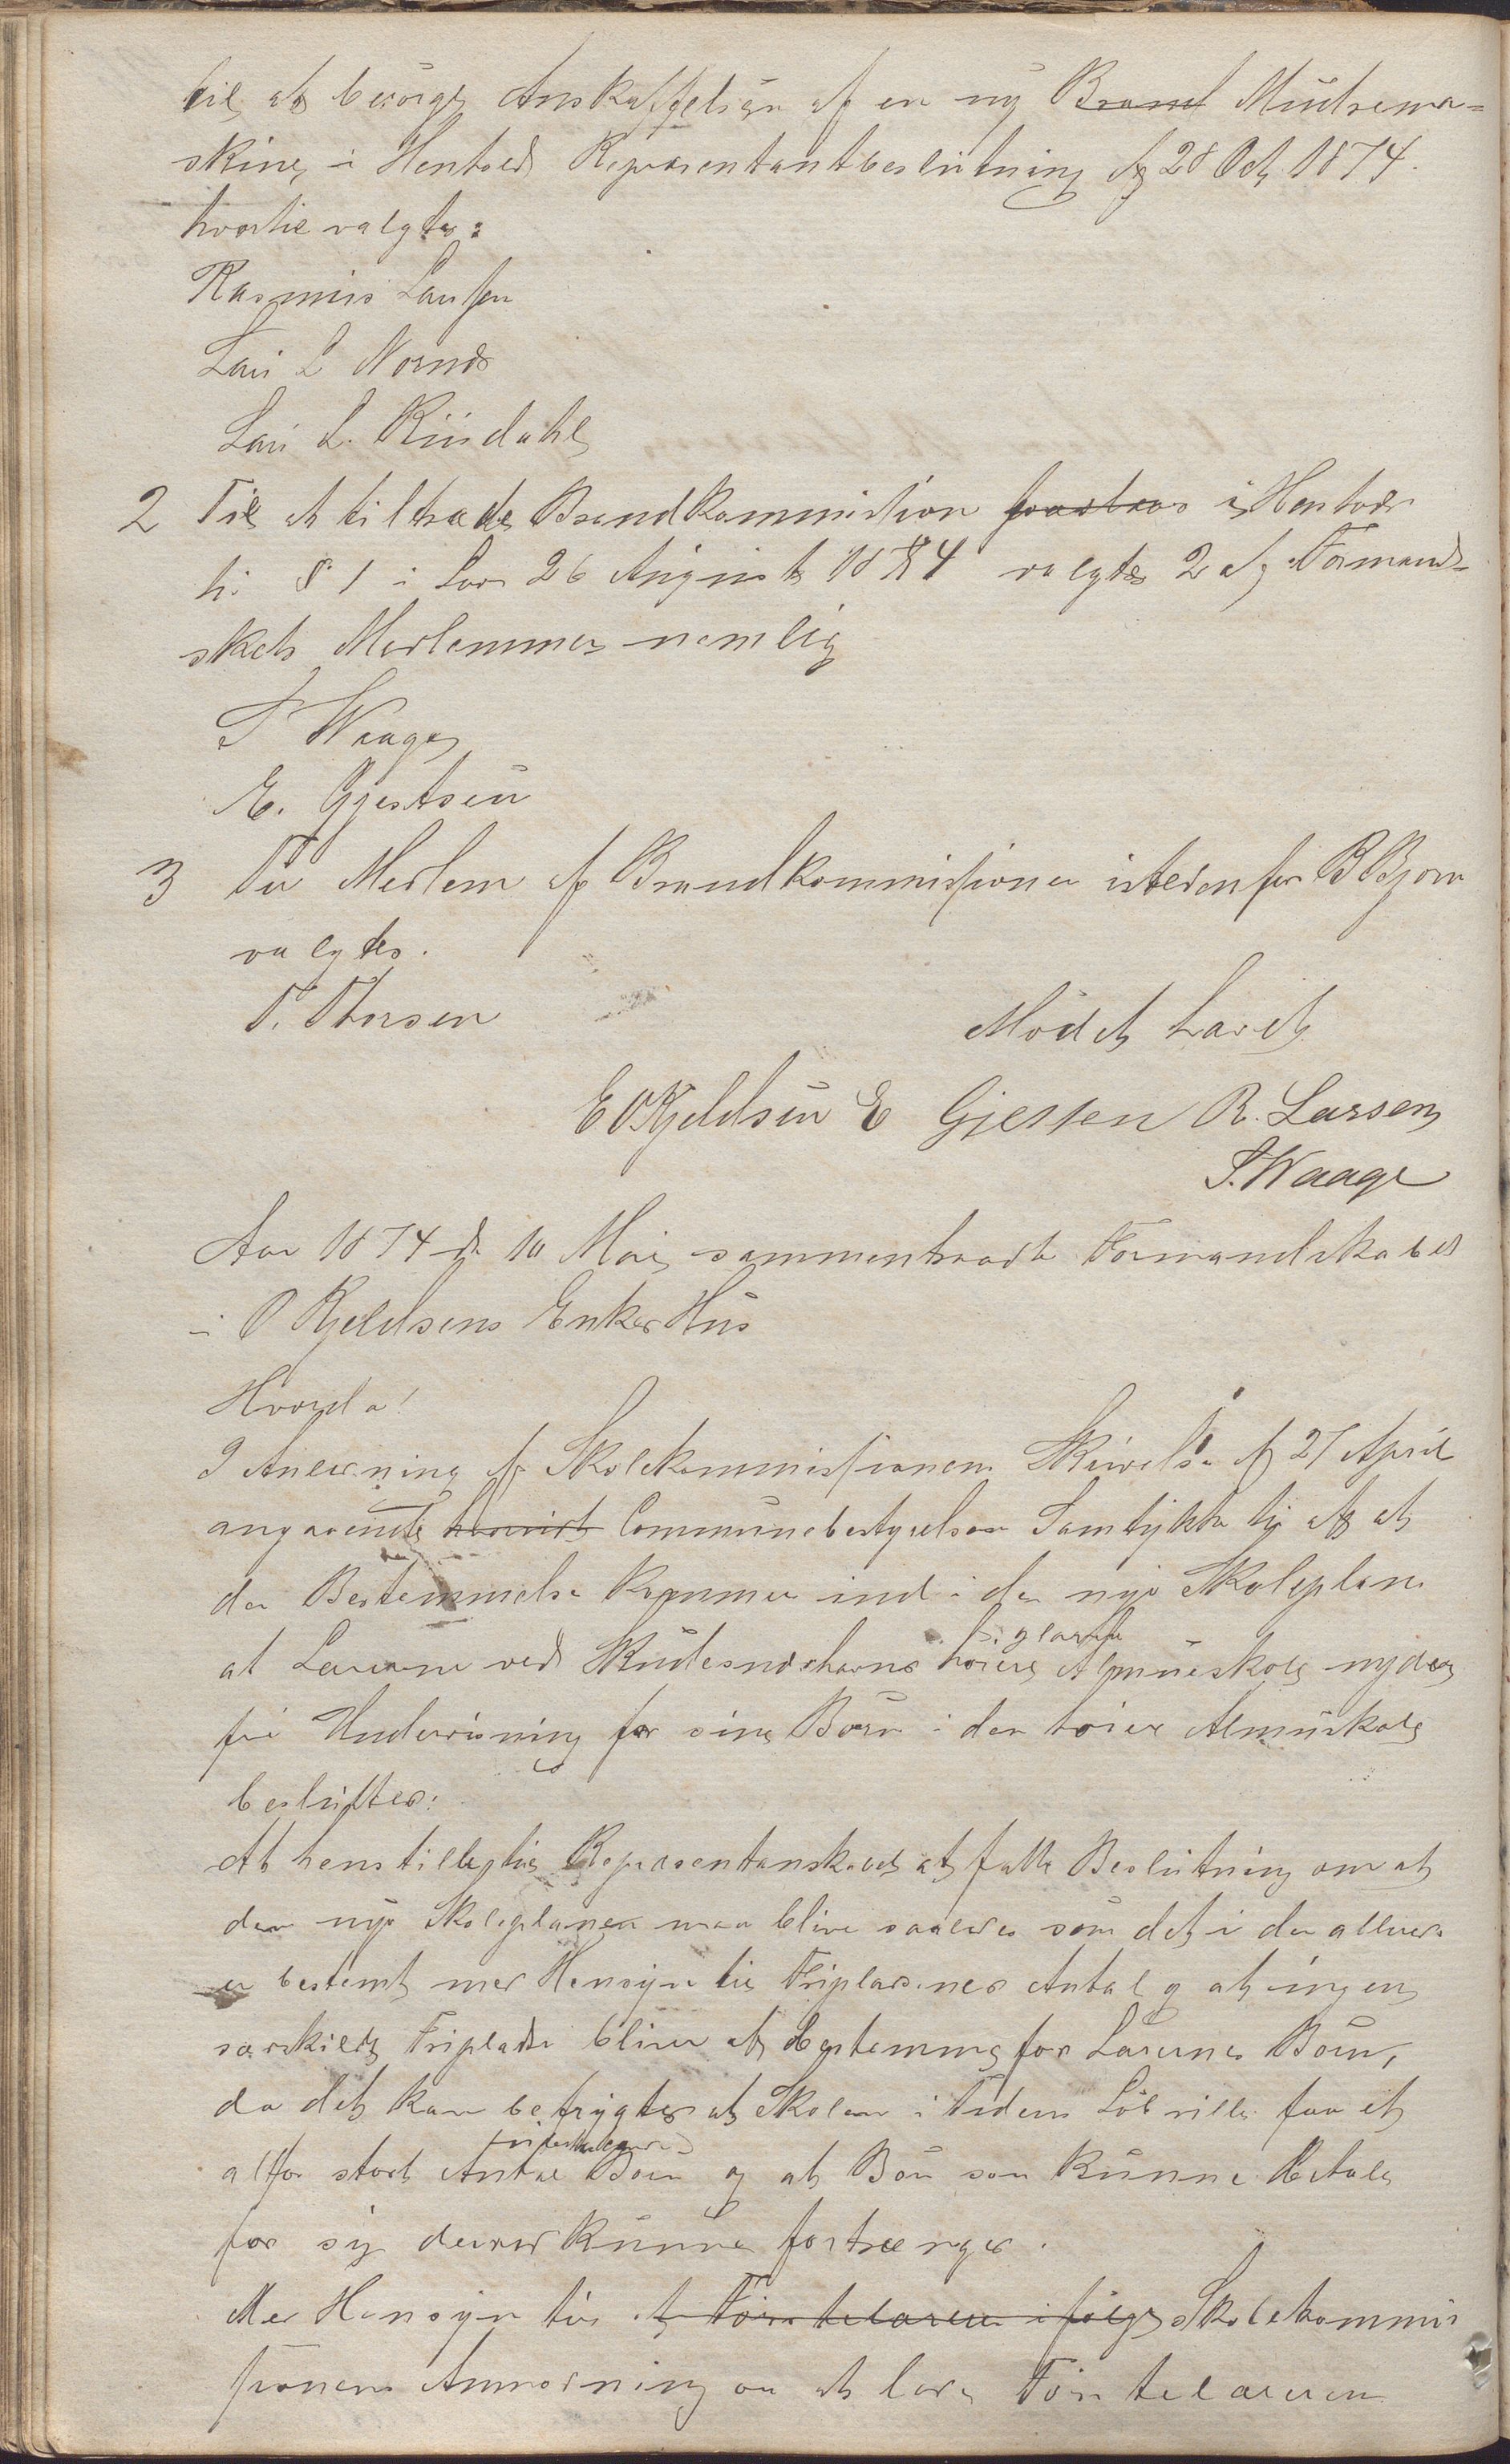 til at besørge Anskaffelsen af en ny Brand Mudrema-
skine, i Henhold Repræsentantbeslutning af 28 Oct 1874.
hvortil valgtes:
Rasmus Laufen
Lau L Nornes
Lau L. Riisdahl
2 Til at tiltræde Brandkommission i Henhold
til § 1 i Lov 26 August 1874 valgtes 2 af Formand-
skets Medlemmer nemlig
S Waage
E. Gjestsen
3 Til Medlem af Brandkommissionen istedenfor B Bjorn
valgtes.
T. Thorsen
Mødet hævet
E O Kjeldsen E Gjessen R. Larsen
S. Waage
Aar 1874 d. 10 Mai sammentraadte Formandskabet
i O Kjeldsens Enkes Hus
Hvorda!
I Anledning af Skolekommissionens Skrivelse af 27 April
angaaende Communebestyrelsens Samtykke til at
den Bestemmelse kommer ind i den nye Skoleplan
at Lærerne ved Skudesneshavns høiere Almueskole nyder
fri Undervisning for sine Børn i den høiere Almuskole
besluttes:
At henstille til Repræsentanskabet at fatte Beslutning om at
den nye Skoleplanen maa blive saaledes som det i den allerede
er bestemt med Hensyn til Fripladsenes Antal og at ingen
særskilt Friplads bliver at bestemme for Lærernes Børn,
da det kan befrygtes at Skolen i Tidens Løb ville faa et
altfor stort Antal Børn og at Børn som kunne betale
for sig derved kunne fortrænges.
Med Hensyn til at Førstelæreren ifølge Skolekommis
sionens Anmodning om at lade Førstelæreren